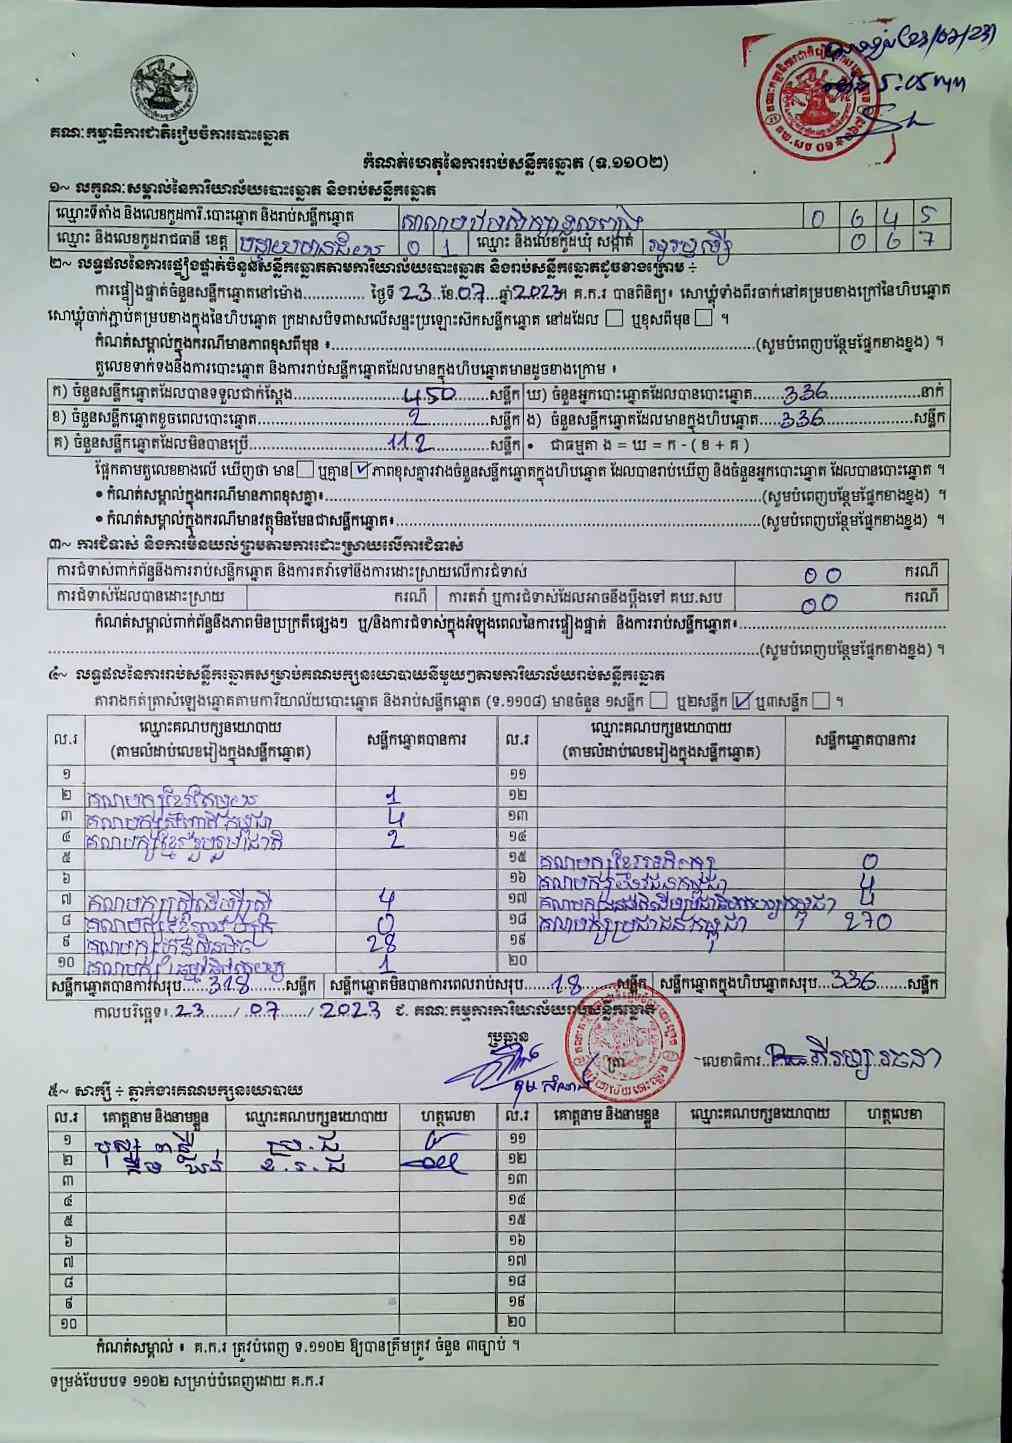 គណៈកម្មាធិការជាតិរៀបចំការបោះឆ្នោត
កំណត់ហេតុនៃការរាប់សន្លឹកឆ្នោត (ទ.១១០២)
១~ លក្ខណៈសម្គាល់នៃការិយាល័យបោះឆ្នោត និងរាប់សន្លឹកឆ្នោត
ឈ្មោះទីតាំង និងលេខកូដការិ.បោះឆ្នោត និងរាប់សន្លឹកឆ្នោត 0 6 4 5
ឈ្មោះ និងលេខកូដរាជធានី ខេត្ត បន្ទាយមានជ័យ 0 1 ឈ្មោះ និងលេខកូដឃុំ សង្កាត់ 0 6 7
២~ លទ្ធផលនៃការផ្ទៀងផ្ទាត់ចំនួនសន្លឹកឆ្នោតតាមការិយាល័យបោះឆ្នោត និងរាប់សន្លឹកឆ្នោតដូចខាងក្រោម ÷
ការផ្ទៀងផ្ទាត់ចំនួនសន្លឹកឆ្នោតនៅម៉ោង.............. ថ្ងៃទី 23 .ខែ.07...ឆ្នាំ2023។ គ.ក.រ បានពិនិត្យ៖ សោឃ្លុំទាំងពីរចាក់នៅគម្របខាងក្រៅនៃហិបឆ្នោត
សោឃ្លុំចាក់ភ្ជាប់គម្របខាងក្នុងនៃហិបឆ្នោត ក្រដាសបិទពាសលើសន្ទះប្រឡោះស៊កសន្លឹកឆ្នោត នៅដដែល ☐ ឬខុសពីមុន ☐ ។
កំណត់សម្គាល់ក្នុងករណីមានភាពខុសពីមុន ៖..........(សូមបំពេញបន្ថែមផ្នែកខាងខ្នង) ។
តួលេខទាក់ទងនឹងការបោះឆ្នោត និងការរាប់សន្លឹកឆ្នោតដែលមានក្នុងហិបឆ្នោតមានដូចខាងក្រោម ៖
ក) ចំនួនសន្លឹកឆ្នោតដែលបានទទួលជាក់ស្តែង..........450.......សន្លឹក ឃ) ចំនួនអ្នកបោះឆ្នោតដែលបានបោះឆ្នោត......336..........នាក់
ខ) ចំនួនសន្លឹកឆ្នោតខូចពេលបោះឆ្នោត..........2..........សន្លឹក ង) ចំនួនសន្លឹកឆ្នោតដែលមានក្នុងហិបឆ្នោត....336..........សន្លឹក
គ) ចំនួនសន្លឹកឆ្នោតដែលមិនបានប្រើ..........112..........សន្លឹក • ជាធម្មតា ង = ឃ = ក - ( ខ + គ )
ផ្អែកតាមតួលេខខាងលើ ឃើញថា មាន ☐ ឬគ្មាន ☑ ភាពខុសគ្នារវាងចំនួនសន្លឹកឆ្នោតក្នុងហិបឆ្នោត ដែលបានរាប់ឃើញ និងចំនួនអ្នកបោះឆ្នោត ដែលបានបោះឆ្នោត ។
• កំណត់សម្គាល់ក្នុងករណីមានភាពខុសគ្នា៖..........(សូមបំពេញបន្ថែមផ្នែកខាងខ្នង) ។
• កំណត់សម្គាល់ក្នុងករណីមានវត្ថុមិនមែនជាសន្លឹកឆ្នោត៖..........(សូមបំពេញបន្ថែមផ្នែកខាងខ្នង) ។
៣~ ការជំទាស់ និងការមិនយល់ព្រមតាមការដោះស្រាយលើការជំទាស់
ការជំទាស់ពាក់ព័ន្ធនឹងការរាប់សន្លឹកឆ្នោត និងការតវ៉ាទៅនឹងការដោះស្រាយលើការជំទាស់ 00 ករណី
ការជំទាស់ដែលបានដោះស្រាយ ករណី ការតវ៉ា ឬការជំទាស់ដែលអាចនឹងប្តឹងទៅ គឃ.សប 00 ករណី
កំណត់សម្គាល់ពាក់ព័ន្ធនឹងភាពមិនប្រក្រតីផ្សេងៗ ឬ/និងការជំទាស់ក្នុងអំឡុងពេលនៃការផ្ទៀងផ្ទាត់ និងការរាប់សន្លឹកឆ្នោត៖..........
..........(សូមបំពេញបន្ថែមផ្នែកខាងខ្នង) ។
៤~ លទ្ធផលនៃការរាប់សន្លឹកឆ្នោតសម្រាប់គណបក្សនយោបាយនីមួយៗតាមការិយាល័យរាប់សន្លឹកឆ្នោត
តារាងកត់ត្រាសំឡេងឆ្នោតតាមការិយាល័យបោះឆ្នោត និងរាប់សន្លឹកឆ្នោត (ទ.១១០៨) មានចំនួន ១សន្លឹក ☐ ឬ២សន្លឹក ☑ ឬ៣សន្លឹក ☐ ។
ល.រ ឈ្មោះគណបក្សនយោបាយ (តាមលំដាប់លេខរៀងក្នុងសន្លឹកឆ្នោត) សន្លឹកឆ្នោតបានការ ល.រ ឈ្មោះគណបក្សនយោបាយ (តាមលំដាប់លេខរៀងក្នុងសន្លឹកឆ្នោត) សន្លឹកឆ្នោតបានការ
១ ១១
២ គណបក្សខ្មែរតែមួយ 1 ១២
៣ គណបក្ស 4 ១៣
៤ គណបក្សខ្មែររួបរួមជាតិ 2 ១៤
៥ ១៥ គណបក្សខ្មែរ 0
៦ ១៦ គណបក្ស កម្ពុជា 4
៧ គណបក្សស្ត្រីដើម្បីស្ត្រី 4 ១៧ គណបក្ស កម្ពុជា 4
៨ គណបក្ស 0 ១៨ គណបក្សប្រជាជនកម្ពុជា 270
៩ គណបក្សហ៊្វុនស៊ិនប៉ិច 28 ១៩
១០ គណបក្ស 1 ២០
សន្លឹកឆ្នោតបានការសរុប.....318......សន្លឹក សន្លឹកឆ្នោតមិនបានការពេលរាប់សរុប......18.......សន្លឹក សន្លឹកឆ្នោតក្នុងហិបឆ្នោតសរុប...336......សន្លឹក
កាលបរិច្ឆេទ៖..23....../..07....../..2023 ជ. គណៈកម្មការការិយាល័យរាប់សន្លឹកឆ្នោត
ប្រធាន
ត្រា
លេខាធិការ
៥~ សាក្សី ÷ ភ្នាក់ងារគណបក្សនយោបាយ
ល.រ គោត្តនាម និងនាមខ្លួន ឈ្មោះគណបក្សនយោបាយ ហត្ថលេខា ល.រ គោត្តនាម និងនាមខ្លួន ឈ្មោះគណបក្សនយោបាយ ហត្ថលេខា
១ ១១
២ ១២
៣ ១៣
៤ ១៤
៥ ១៥
៦ ១៦
៧ ១៧
៨ ១៨
៩ ១៩
១០ ២០
កំណត់សម្គាល់ ៖ គ.ក.រ ត្រូវបំពេញ ទ.១១០២ ឱ្យបានត្រឹមត្រូវ ចំនួន ៣ច្បាប់ ។
ទម្រង់បែបបទ ១១០២ សម្រាប់បំពេញដោយ គ.ក.រ